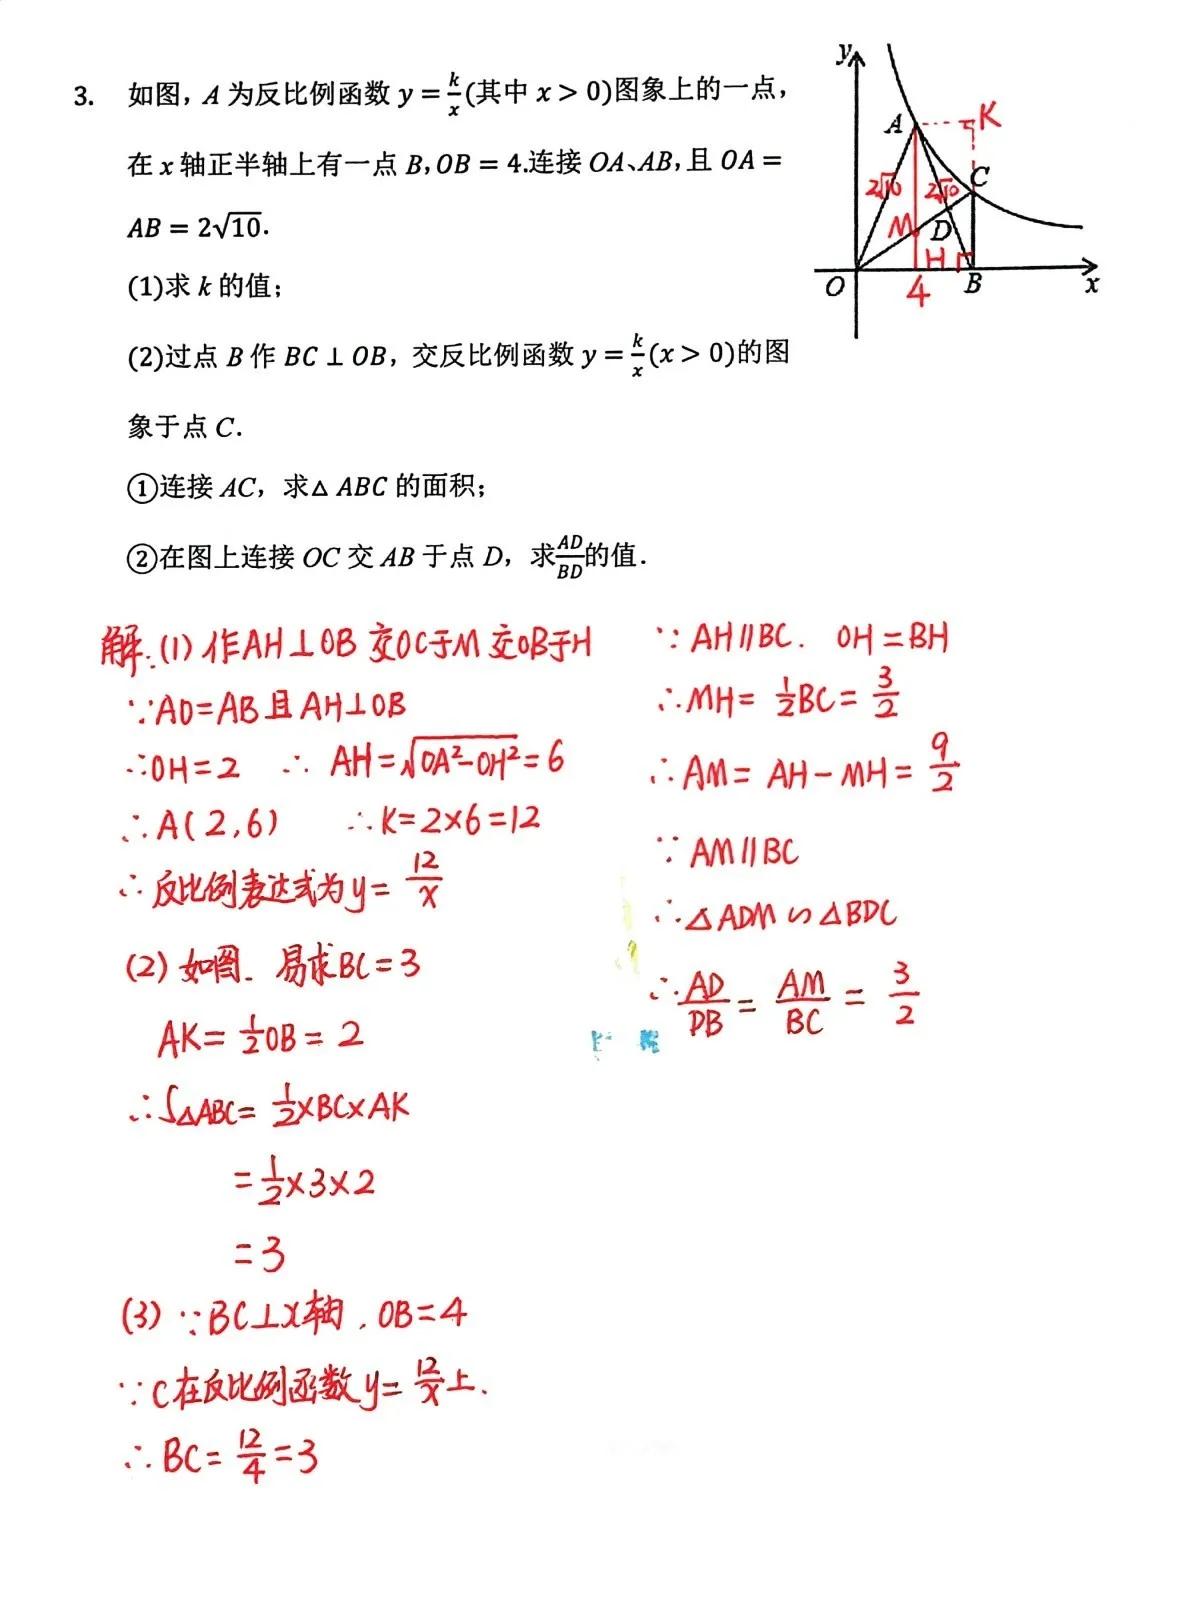 3. 如图，A 为反比例函数 y = k/x (其中 x > 0)图象上的一点，
在 x 轴正半轴上有一点 B，OB = 4.连接 OA、AB，且 OA =
AB = 2√10.
(1)求 k 的值；
(2)过点 B 作 BC ⊥ OB，交反比例函数 y = k/x (x > 0)的图
象于点 C.
①连接 AC，求△ ABC 的面积；
②在图上连接 OC 交 AB 于点 D，求AD/BD的值.
y
A
K
2√10
2√10
C
M
D
H
O
4
B
x
解:(1) 作AH⊥OB 交OC于M 交OB于H
∵AO=AB且AH⊥OB
∴OH=2 ∴ AH=√OA²-OH²=6
∴A(2,6) ∴K=2×6=12
∴反比例表达式为y= 12/x
(2) 如图. 易求BC=3
AK= 1/2OB= 2
∴S△ABC= 1/2×BC×AK
=1/2×3×2
=3
(3) ∵BC⊥X轴.OB=4
∵C在反比例函数y=12/x上.
∴BC=12/4=3
∵AH∥BC. OH=BH
∴MH= 1/2BC= 3/2
∴AM= AH-MH= 9/2
∵AM∥BC
∴△ADM∽△BDC
∴AD/DB = AM/BC = 3/2